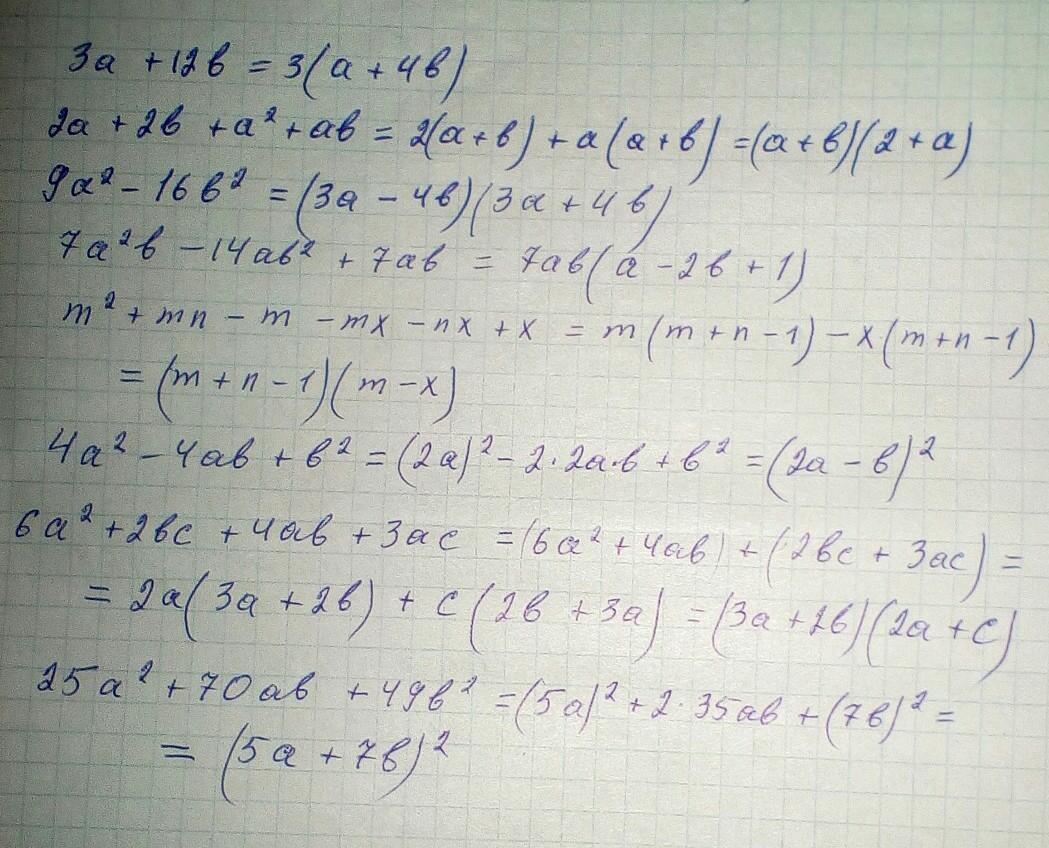 3a + 12b = 3(a + 4b)
2a + 2b + a² + ab = 2(a+b) + a(a+b) = (a+b)(2+a)
9a² - 16b² = (3a - 4b)(3a + 4b)
7a²b - 14ab² + 7ab = 7ab(a - 2b + 1)
m² + mn - m - mx - nx + x = m(m + n - 1) - x(m+n-1)
= (m + n - 1)(m - x)
4a² - 4ab + b² = (2a)² - 2·2a·b + b² = (2a - b)²
6a² + 2bc + 4ab + 3ac = (6a² + 4ab) + (2bc + 3ac) =
= 2a(3a + 2b) + c(2b + 3a) = (3a + 2b)(2a + c)
25a² + 70ab + 49b² = (5a)² + 2·35ab + (7b)² =
= (5a + 7b)²